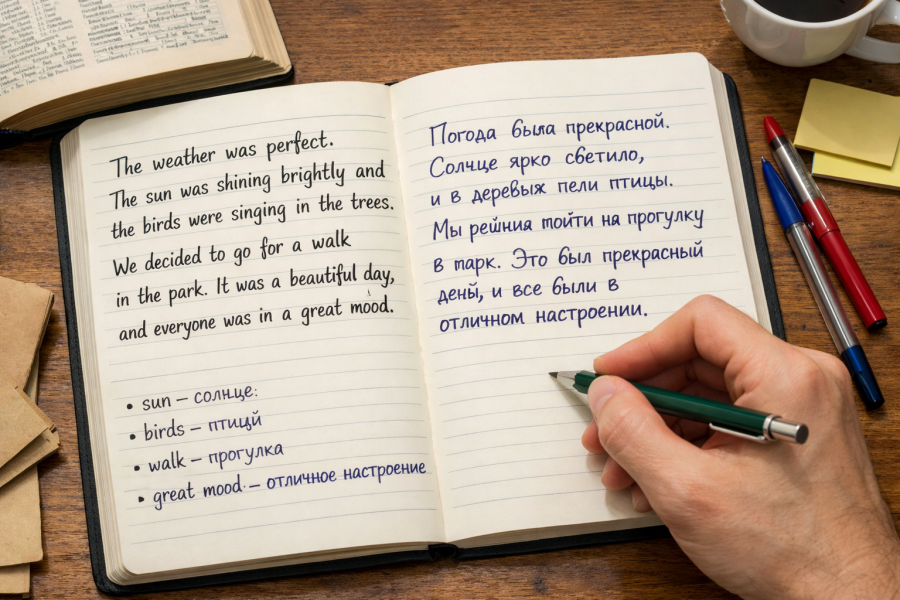 The weather was perfect.
The sun was shining brightly and
the birds were singing in the trees.
We decided to go for a walk
in the park. It was a beautiful day,
and everyone was in a great mood.
• sun – солнце:
• birds – птицй
• walk – прогулка
• great mood. – отличное настроение
Погода была прекрасной.
Солнце ярко светило,
и в деревых пели птицы.
Мы решния пойти на прогулку
в парк. Это был прекрасный
дený, и все были в
отличном настроении.